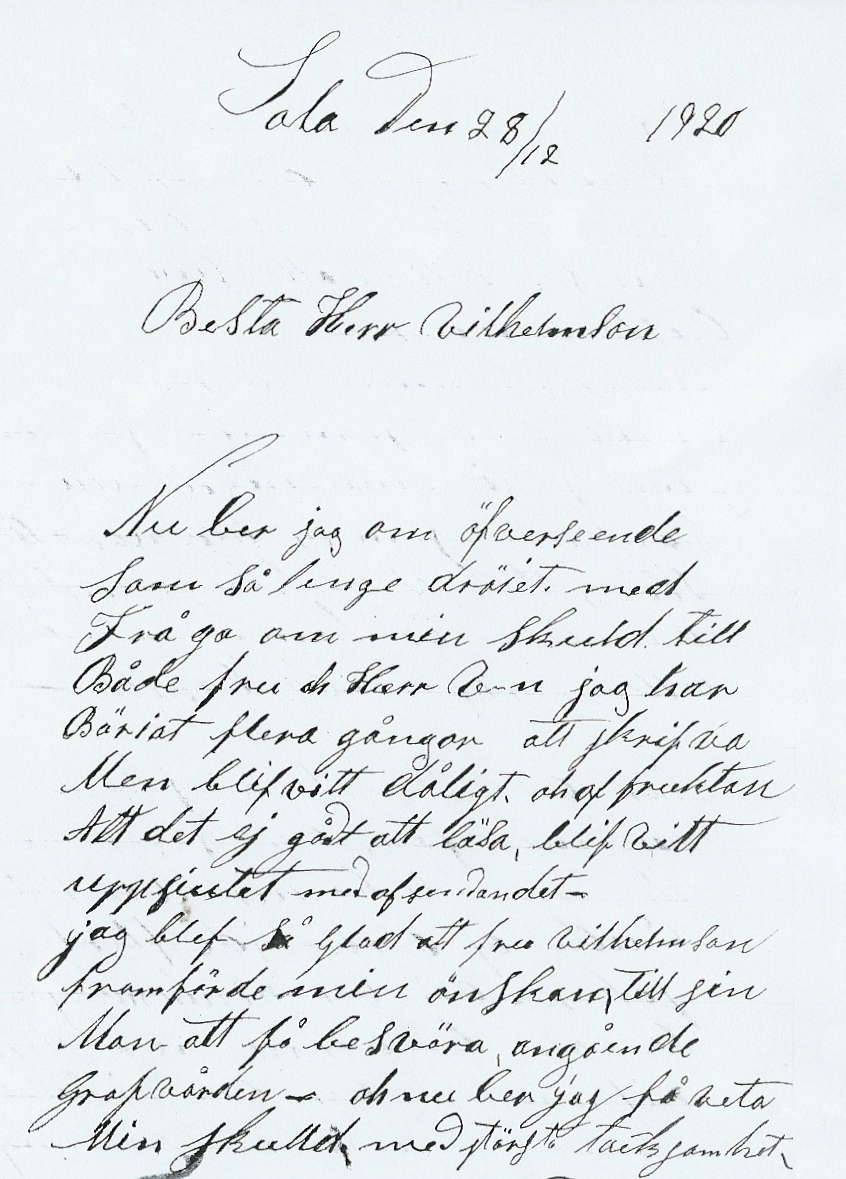 Sala Den 28/12 1920
Besta Herr Vilhelmson
Nu ber jag om öfverseende
som så lenge dröiet. med
Fråga om min skuld. till
Både fru oh Herr V-n jag har
Böriat flera gångor att skrifva
Men blifvitt dåligt. oh af fruktan
Att det ej gådt att läsa, blifvitt
uppsjutet med afsendandet-
jag blef så Glad att fru Vilhelmson
framförde min önskan, till sin
Man att få besvära, angående
Grafvården- oh nu ber jag få veta
Min skulld, med största tacksamhet,